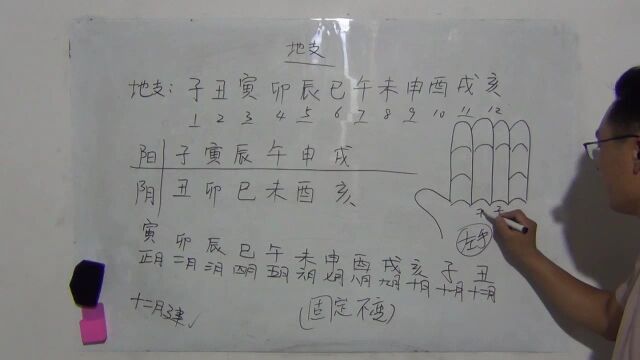 地支
地支: 子 丑 寅 卯 辰 巳 午 未 申 酉 戌 亥
1 2 3 4 5 6 7 8 9 10 11 12
阳 子 寅 辰 午 申 戌
阴 丑 卯 巳 未 酉 亥
寅 卯 辰 巳 午 未 申 酉 戌 亥 子 丑
正月 二月 三月 四月 五月 六月 七月 八月 九月 十月 十一月 十二月
十二月
(固定不变)
子
左手